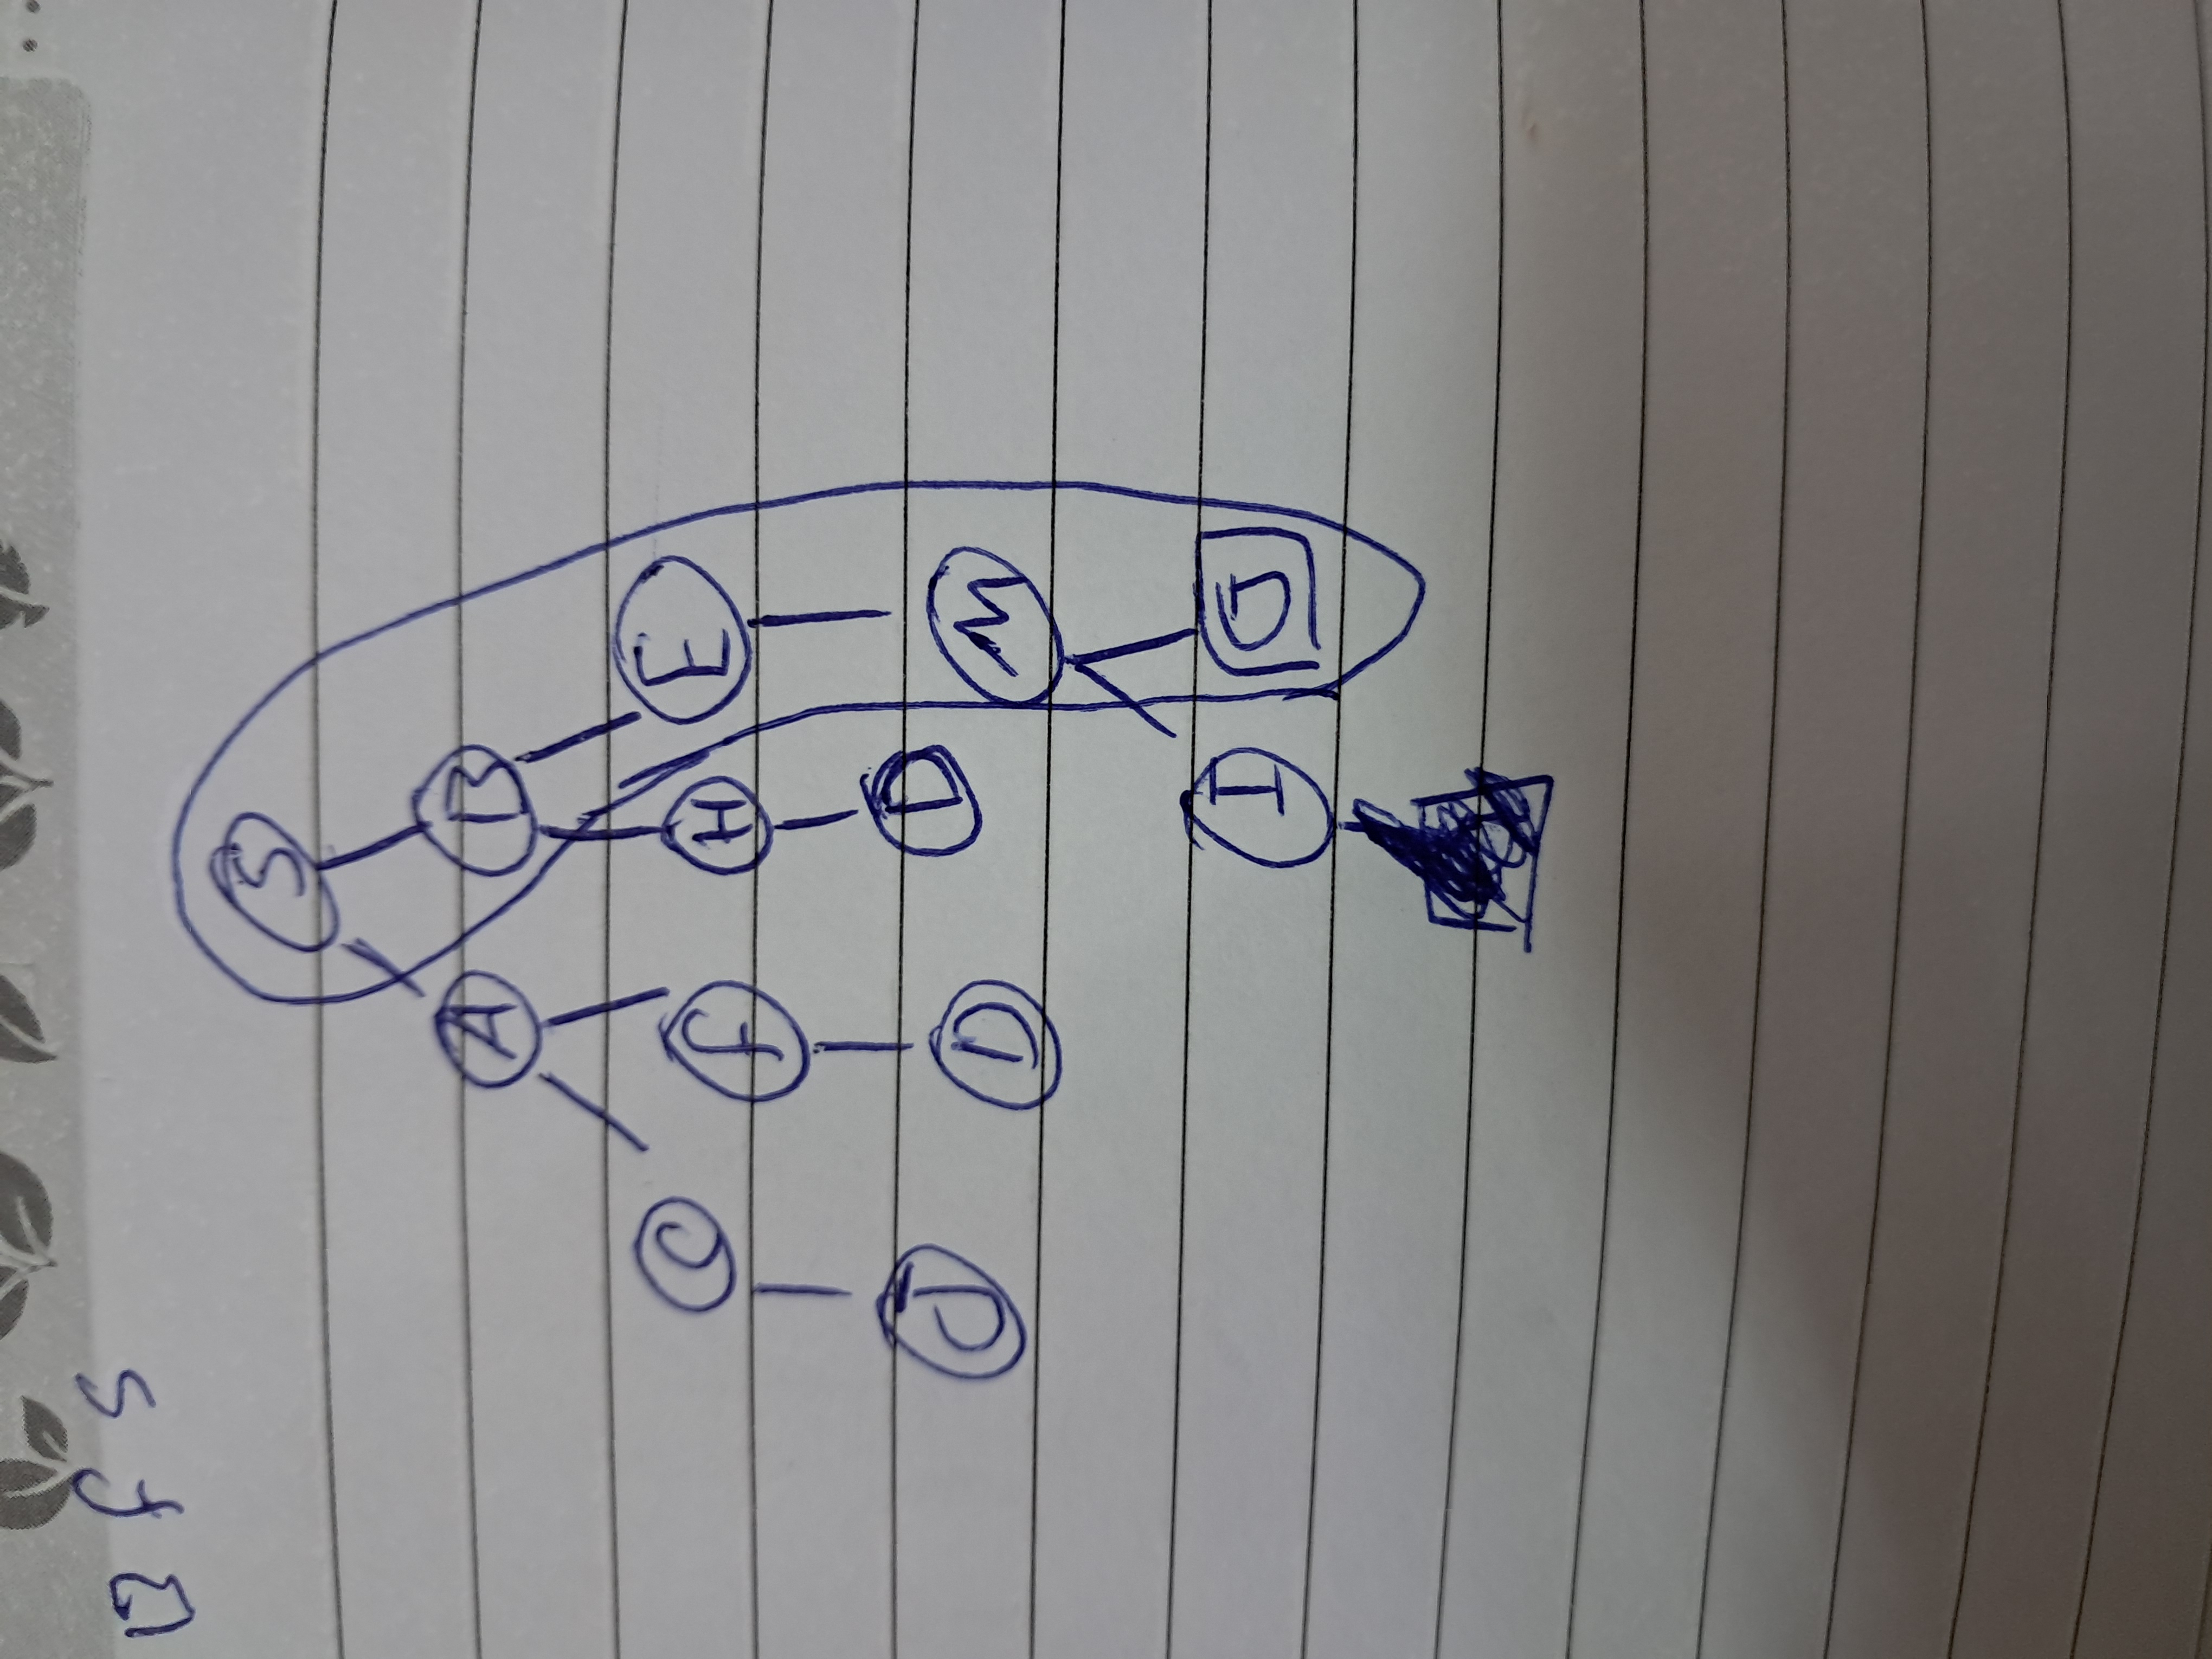 BfS
S
A B
C f H E
J D D M
I J